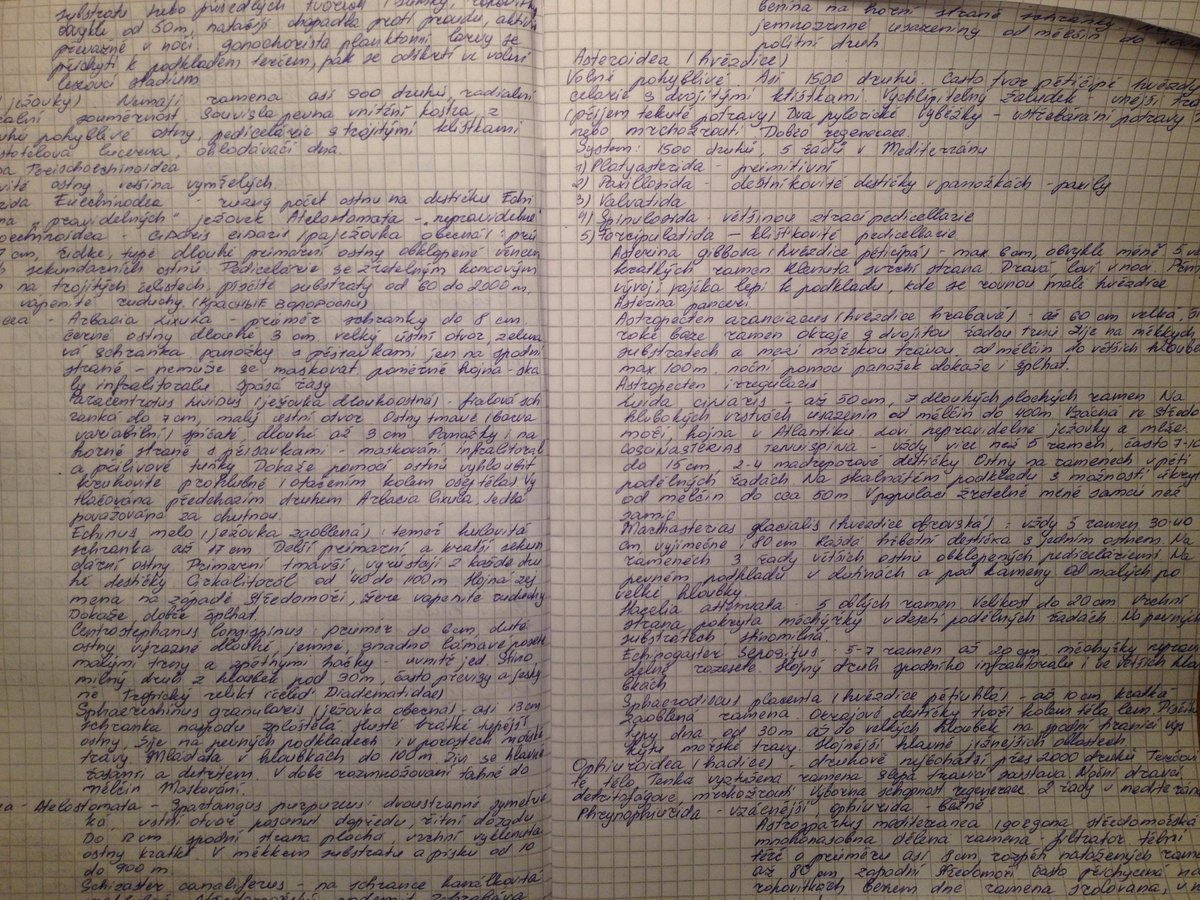 substrátu nebo přisedlých tvorech
obvykle od 50m, natáčejí chapadla proti proudu, aktivní
převážně v noci. gonochorista planktonní larvy se
přichytí k podkladem terčem, pak se odškrtí ve volně
lezoucí stadium
(ježovky). Nemají ramena asi 900 druhů, radiální
souměrnost souvislá pevná vnitřní kostra z
pohyblivé ostny, pedicelárie s trojitými klištkami
lucerna, okloдávači dna.
ostny, většina vymřelých
Euechinoidea - různý počet ostnů na destičku
"pravidelných" ježovek Atelostomata - nepravidelné
- Cidaris cidaris (pajezovka obecná):
7 cm, řídké, tupé dlouhé primární ostny obklopené věncem
sekundárních ostnů. Pedicelárie se zřetelným koncovým
na trojitých čelistech, písčité substráty od 60 do 2000 m,
vápenité ruduchy (КРАСНЫЕ ВОДОРОСЛИ)
- Arbacia lixula - průměr schránky do 8 cm
černé ostny dlouhé 3 cm, velký ústní otvor zelena
vá schránka panožky s přísavkami jen na spodní
straně - nemůže se maskovat poměrně hojná - ska
ly infralitorálu spásá řasy
Paracentrotus lividus (ježovka dlouhoostná) - fialová sch
ránka do 7 cm, malý ústní otvor Ostny tmavé (barva
variabilní) špičaté dlouhé až 3 cm Panožky i na
horní straně s přísavkami - maskování, infralitorál
a přílivové tůňky Dokáže pomocí ostnů vyhloubit
kruhovité prohlubně i otáčením kolem osy těla Vy
tlačována předchozím druhem Arbacia lixula Jedlá
považována za chutnou.
Echinus melo (ježovka zaoblená): téměř kulovitá
schránka až 17 cm Delší primární a kratší sekun
dární ostny Primární tmavší, vyrůstají z každé dru
hé destičky Cirkalitorál od 40 do 100 m Hojná zej
mena na západě Středomoří, žere vápenité ruduchy
Dokáže dobře šplhat.
Centrostephanus longispinus: průměr do 6 cm, dutá
ostny výrazně dlouhé, jemné, snadno lámavé poseté
malými trny a zpětnými háčky - uvnitř jed. Stíno
milný druh z hloubek pod 30m, často převisy a jesky
ně Tropický relikt (čeleď Diadematidae)
Sphaerechinus granularis (ježovka obecná): asi 13 cm
schránka naspodu zploštělá husté krátké tupější
ostny. Žije na pevných podkladech i v porostech mořské
trávy. Mláďata v hloubkách do 100m Živí se hlavně
řasami a detritem. V době rozmnožování táhne do
mělčin Maskování.
- Atelostomata - Spatangus purpureus: dvoustranně symetric
ká, ústní otvor posunut dopředu, řitní dozadu
Do 12 cm spodní strana plochá vrchní vyklenutá
ostny krátké. V měkkém substrátu a písku od 10
do 900 m
Schizaster canaliferus - na schránce kanálkovitá
horní straně schránky
jemnozrnné usazeniny od mělčin do
politní druh
Asteroidea (hvězdice)
Volně pohyblivé Asi 1500 druhů. Často tvar pěticípé hvězdy
celárie s dvojitými klištkami. Vychlípitelný žaludek vnější
(příjem tekuté potravy) Dva pylorické výběžky - vstřebávání potravy
nebo mrchožrouti Dobrá regenerace
Systém: 1500 druhů, 5 řádů v Mediteránu
1) Platyasterida - primitivní
2) Paxillosida - deštníkovité destičky v panožkách - paxily
3) Valvatida
4) Spinulosida většinou ztrácí pedicellarie
5) Forcipulatida — klištkovité pedicellarie
Asterina gibbosa (hvězdice pěticípá) - max 6 cm, obvykle méně 5
krátkých ramen Klenutá svrchní strana Dravá, loví v noci.
vývoj, vajíčka lepí k podkladu, kde se rovnou malé hvězdice
Asterina panceri
Astropecten aranciacus (hvězdice hrabavá) - až 60 cm velká,
roké báze ramen okraje s dvojitou řadou trnů Žije na měkkých
substrátech a mezi mořskou trávou. od mělčin do větších hloubek
max 100m. noční pomocí panožek dokáže i šplhat.
Astropecten irregularis
Luidia ciliaris - až 50 cm, 7 dlouhých plochých ramen Na
hlubokých vrstvách usazenin od mělčin do 400m Vzácná ve Středo
moří, hojná v Atlantiku Loví nepravidelné ježovky a měkkýše.
Coscinasterias tenuispina - vždy více než 5 ramen, často 7-10
do 15 cm, 2-4 madreporové destičky Ostny na ramenech v pěti
podélných řadách Na skalnatém podkladu s možností úkrytu
od mělčin do cca 50m V populaci zřetelně méně samců než
samic
Marthasterias glacialis (hvězdice obrovská): vždy 5 ramen 30-40
cm, výjimečně i 80cm Každá hřbetní destička s jedním ostnem. Na
ramenech 3 řady větších ostnů obklopených pediceláriemi Na
pevném podkladu v dutinách a pod kameny Od malých po
velké hloubky
Hacelia attenuata - 5 oblých ramen Velikost do 20 cm Vrchní
strana pokryta měchýřky v deseti podélných řadách Na pevných
substrátech stínomilná.
Echinaster sepositus: 5-7 ramen až 20 cm měchýřky neprav
delně rozeseté. Hojný druh spodního infralitorálu i ve větších hlou
bkách
Sphaerodiscus placenta (hvězdice pětiúhlá) - až 10 cm krátká
zaoblená ramena. Okrajové destičky tvoří kolem těla lem
typy dna, od 30 m až do velkých hloubek na spodní hranici výs
kytu mořské trávy. Hojnější hlavně jižnějších oblastech
Ophiuroidea (hadice) - druhově nejbohatší přes 2000 druhů
té tělo Tenká vyztužená ramena slepá trávicí soustava Noční dravci
detritofágové, mrchožrouti výborná schopnost regenerace 2 řády v mediterán
Phrynophiurida - vzácnější, ophiurida - běžné
Astrospartus mediterranea (gorgona středomořská)
mnohonásobně dělená ramena - filtrátor tělní
terč o průměru asi 8 cm, rozpětí natažených ramen
až 80 cm západní středomoří často přichycená na
rohovitkách během dne ramena srolovaná, v n